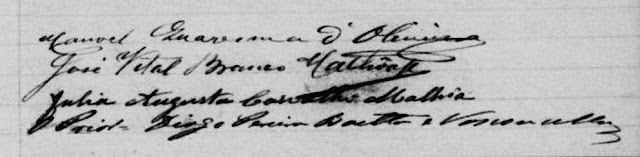 Manoel Quaresma d'Oliveira
José Vital Branco Malhôa
Julia Augusta Carvalho Malhôa
O Prior Diogo Pereira Baetta e Vasconcellos